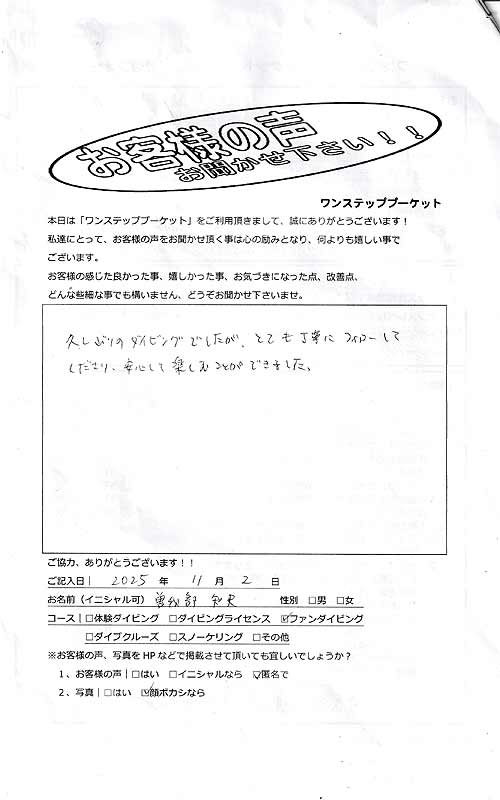 お客様の声
お聞かせ下さい！！
ワンステッププーケット
本日は「ワンステッププーケット」をご利用頂きまして、誠にありがとうございます！
私達にとって、お客様の声をお聞かせ頂く事は心の励みとなり、何よりも嬉しい事で
ございます。
お客様の感じた良かった事、嬉しかった事、お気づきになった点、改善点、
どんな些細な事でも構いません、どうぞお聞かせ下さいませ。
久しぶりのダイビングでしたが、とても丁寧にフォローして
くださり、安心して楽しむことができました。
ご協力、ありがとうございます！！
ご記入日| 2025 年 11 月 2 日
お名前（イニシャル可） 曽我部 知史 性別 □男 □女
コース|□体験ダイビング □ダイビングライセンス ☑ファンダイビング
□ダイブクルーズ □スノーケリング □その他
※お客様の声、写真をHPなどで掲載させて頂いても宜しいでしょうか？
1、お客様の声|□はい □イニシャルなら ☑匿名で
2、写真|□はい ☑顔ボカシなら